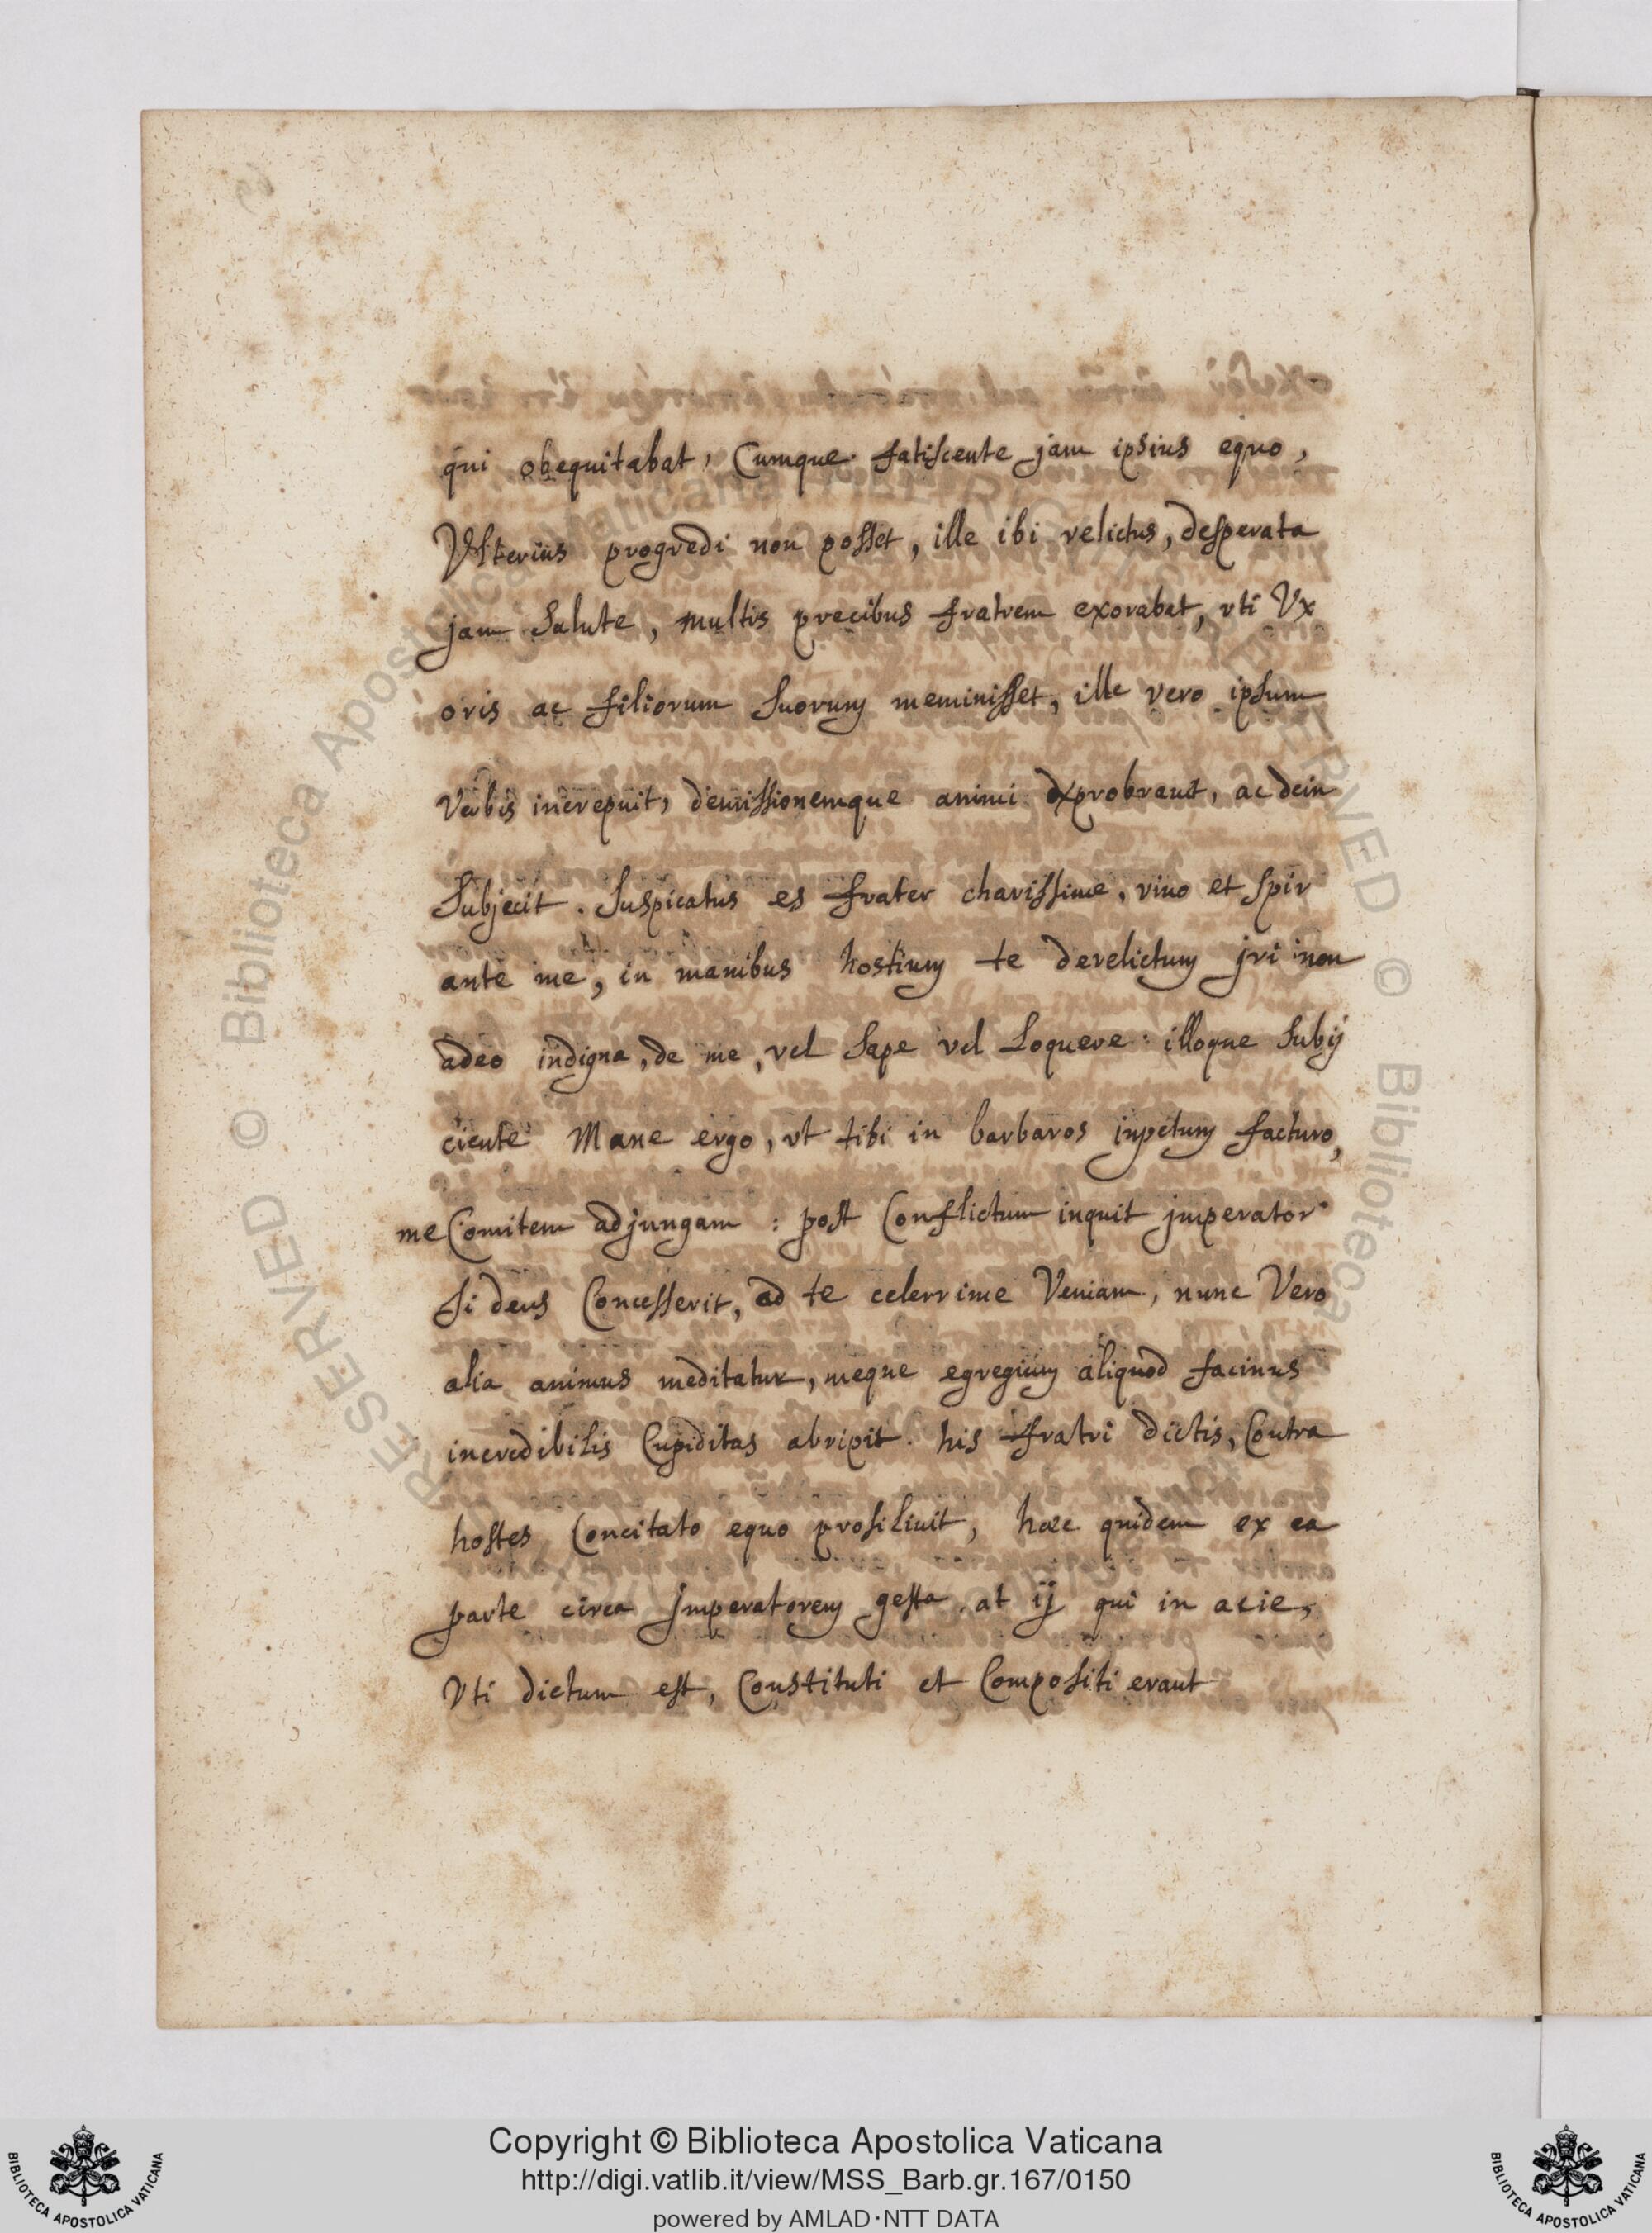 qui obequitabat, Cumque fatiscente jam ipsius equo,
Vlterius progredi non posset, ille ibi relictus, desperata
jam Salute, multis precibus fratrem exorabat, vti Vx
oris ac filiorum Suorum meminisset, ille vero ipsum
Verbis increpuit, demissionemque animi exprobrauit, ac dein
Subjecit. Suspicatus es frater charissime, viuo et Spir
ante me, in manibus hostium te derelictum jri non
adeo indigna, de me, vel Sape vel Loquere: illoque Subij
ciente Mane ergo, vt tibi in barbaros inpetum facturo,
me Comitem adjungam : post Conflictum inquit jmperator
Si deus Concesserit, ad te celerrime Veniam, nunc Vero
alia animus meditatur, meque egregium aliquod facinus
incredibilis Cupiditas abripit. his fratri dictis, Contra
hostes Concitato equo prosiliuit, hæc quidem ex ea
parte circa Jmperatorem gesta. at ij qui in acie,
Vti dictum est, Constituti et Compositi erant
© Biblioteca Apostolica Vaticana
RESERVED © Biblioteca
Copyright © Biblioteca Apostolica Vaticana
http://digi.vatlib.it/view/MSS_Barb.gr.167/0150
powered by AMLAD·NTT DATA
BIBLIOTECA APOSTOLICA VATICANA
BIBLIOTECA APOSTOLICA VATICANA